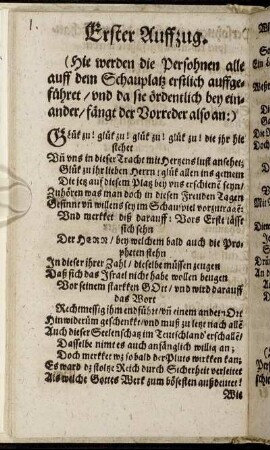 1.
Erster Auffzug.
(Hie werden die Persohnen alle
auff dem Schauplatz erstlich auffge-
führet / vnd da sie ördentlich bey ein-
ander / fängt der Vorreder also an:)
Glük zu! glük zu! glük zu! glük zu! die ihr hie
stehet
Vñ vns in dieser Tracht mit Hertzens lust ansehet;
Glük zu ihr lieben Herrn; glük allen ins gemein
Die jez auf diesem Platz bey vns erschienẽ seyn /
Zuhören was man doch in diesen Freuden Tagen
Gesinnt vñ willens sey im Schauspiel vorzutragẽ:
Vnd merkket diß darauff: Vors Erste lässt
sich sehn
Der HErr / bey welchem bald auch die Pro-
pheten stehn
In dieser ihrer Zahl / dieselbe müssen zeugen
Daß sich das Israel nicht habe wollen beugen
Vor seinem starkken GOtt / vnd wird darauff
das Wort
Rechtmessig ihm endführ vñ einem ander Ort
Hinwiderüm geschenkket vnd muß zu letze nach allẽ
Auch dieser Seelenschaz im Teutschland erschallẽ /
Dasselbe nimt es auch anfänglich willig an;
Doch merkket wz so bald der Pluto wirkken kan;
Es ward dz stoltze Reich durch Sicherheit verleitet
Als welche Gottes Werk zum bösesten außdeutet!
Wie